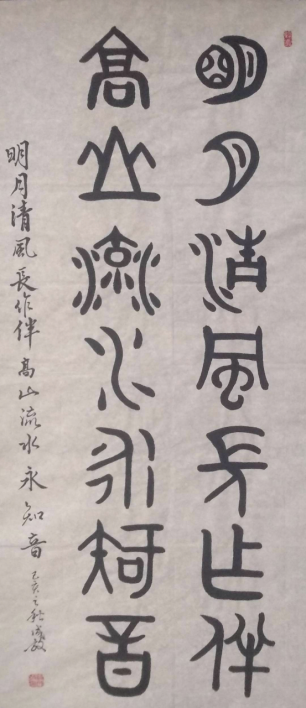 明月清風長作伴
高山流水永知音
明月清風長作伴高山流水永知音
己亥之秋